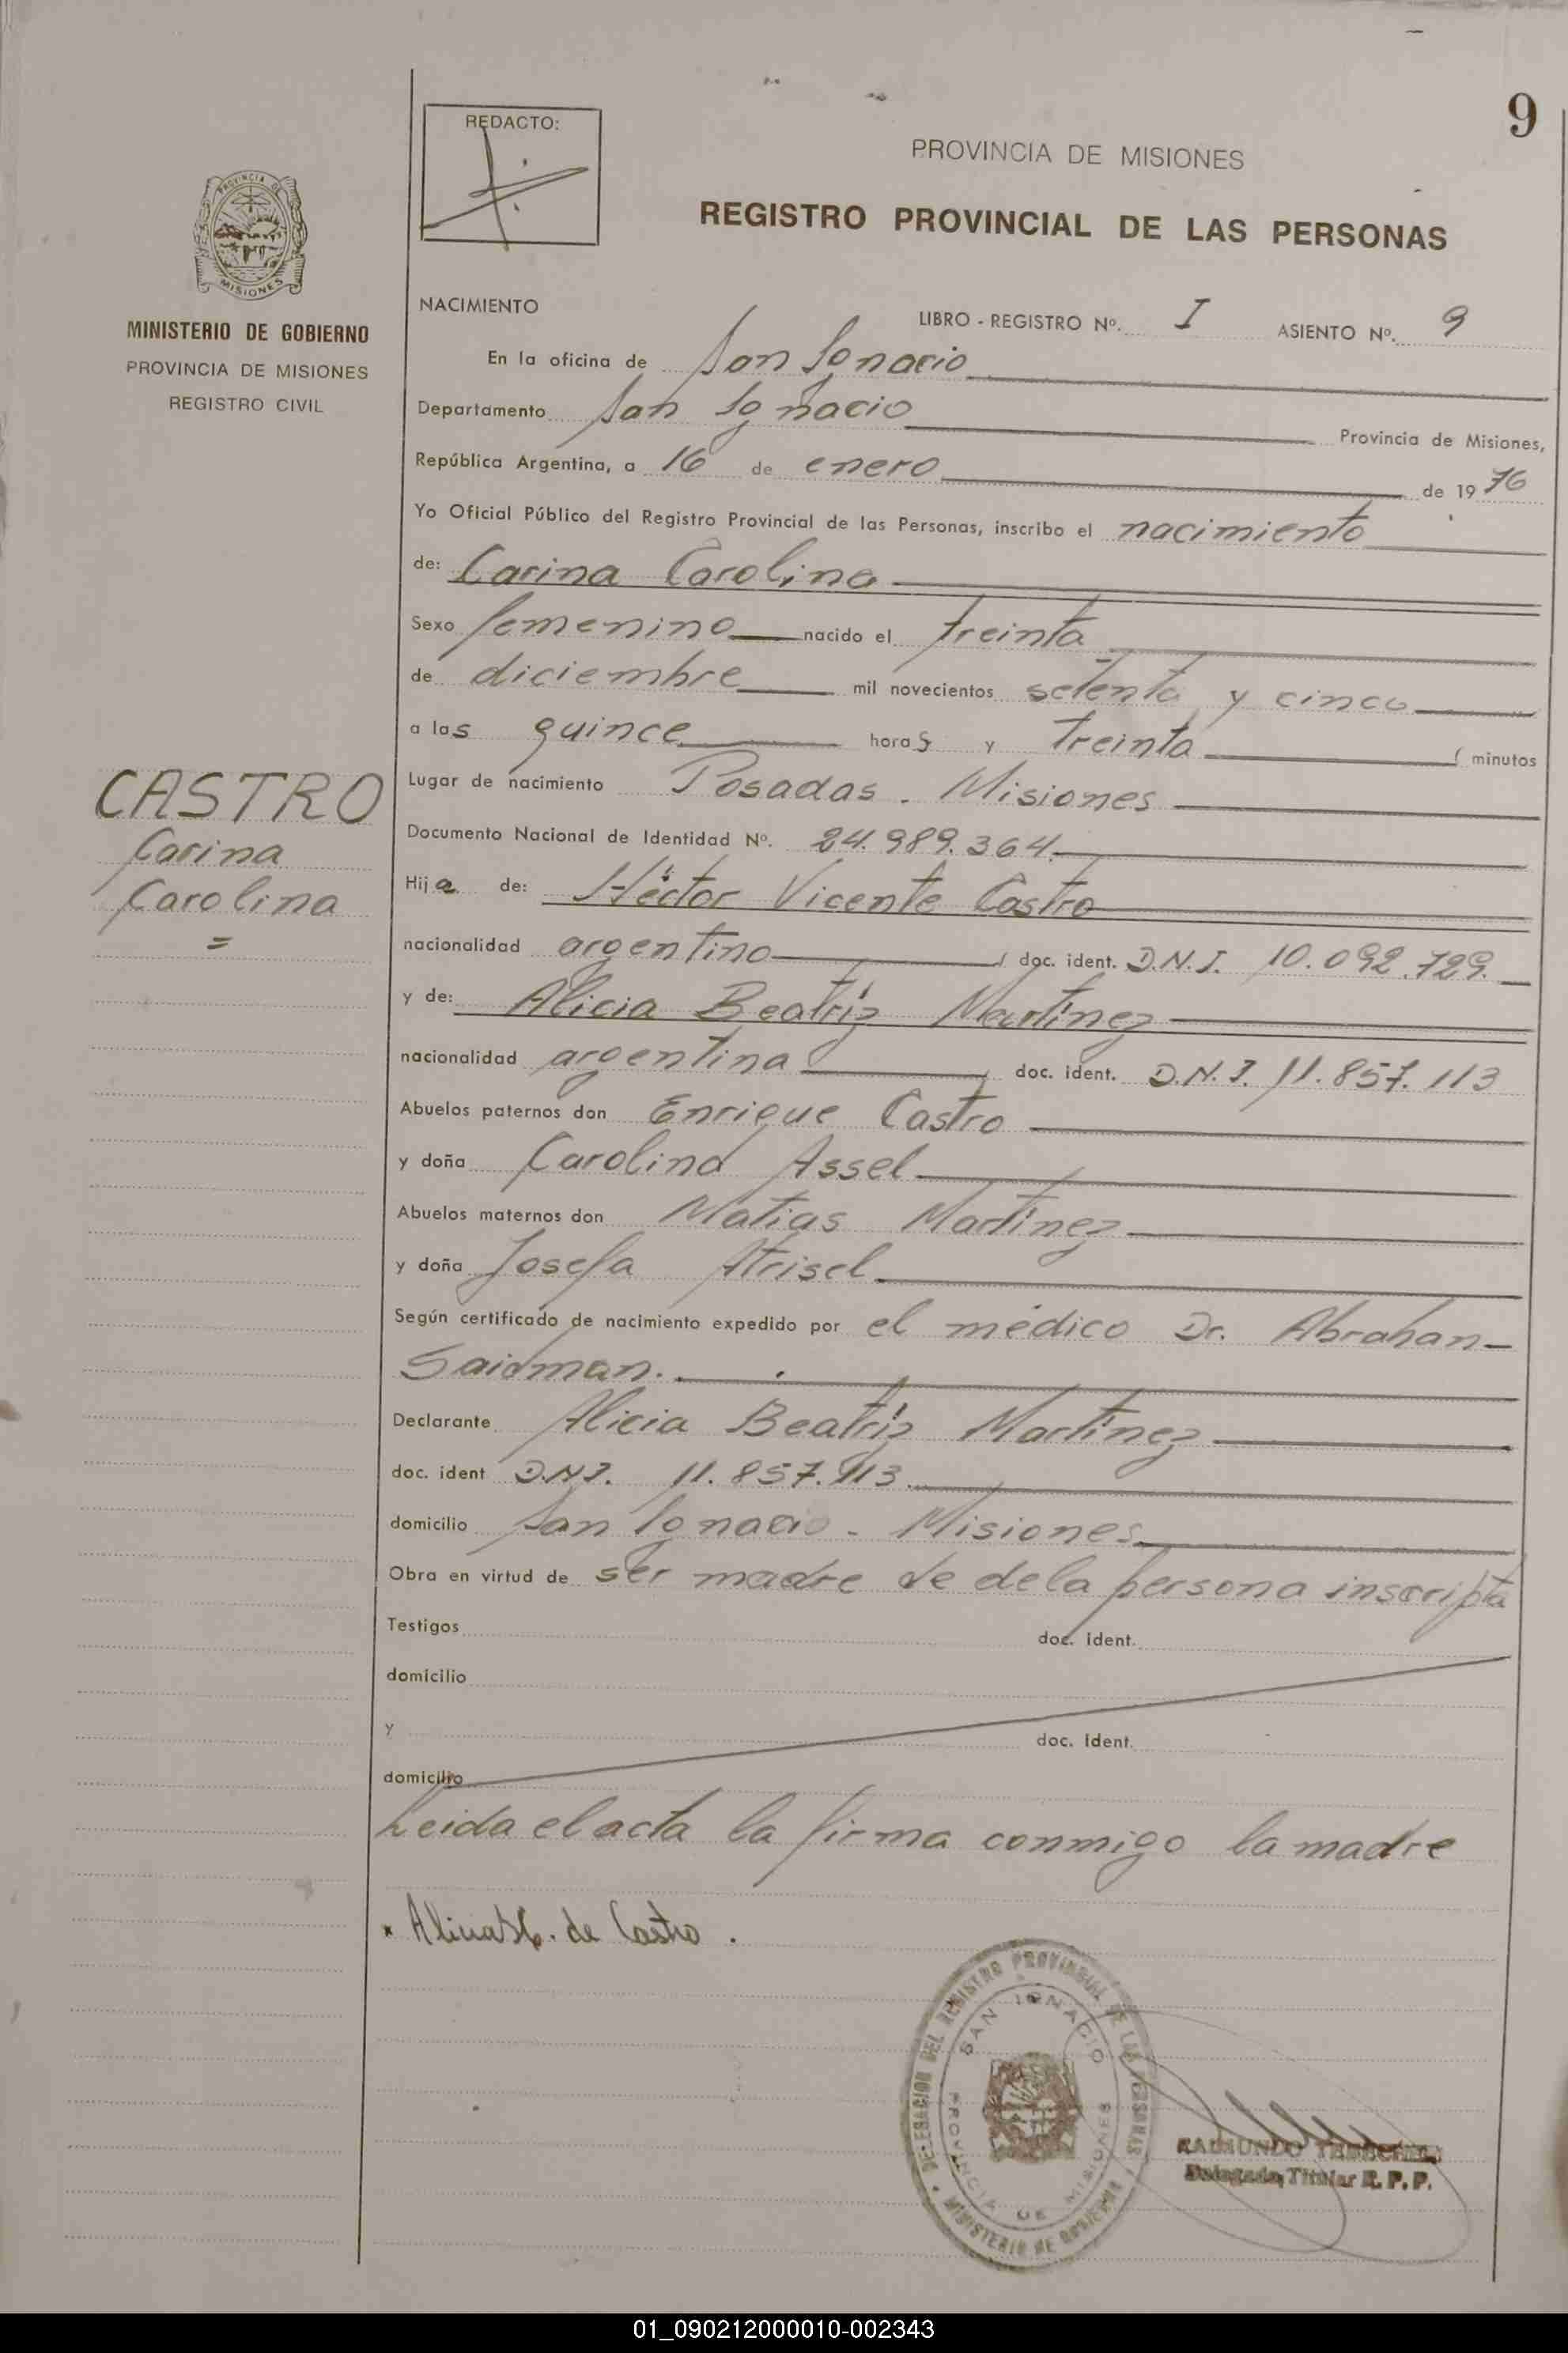 9
REDACTO:
PROVINCIA DE MISIONES
REGISTRO PROVINCIAL DE LAS PERSONAS
PROVINCIA DE
MISIONES
MINISTERIO DE GOBIERNO
PROVINCIA DE MISIONES
REGISTRO CIVIL
NACIMIENTO LIBRO - REGISTRO Nº. I ASIENTO Nº. 9
En la oficina de San Ignacio
Departamento San Ignacio Provincia de Misiones,
República Argentina, a 16 de enero de 1976
Yo Oficial Público del Registro Provincial de las Personas, inscribo el nacimiento
de: Carina Carolina
Sexo femenino nacido el treinta
de diciembre mil novecientos setenta y cinco
a las quince horas y treinta minutos
CASTRO
Carina
Carolina
=
Lugar de nacimiento Posadas. Misiones
Documento Nacional de Identidad Nº. 24.989.364.
Hija de: Héctor Vicente Castro
nacionalidad argentino doc. ident. D.N.I. 10.092.729.
y de: Alicia Beatríz Martínez
nacionalidad argentina doc. ident. D.N.I. 11.857.113
Abuelos paternos don Enrique Castro
y doña Carolina Assel
Abuelos maternos don Matias Martínez
y doña Josefa
Según certificado de nacimiento expedido por el médico Dr. Abrahan
Saidman.
Declarante Alicia Beatríz Martínez
doc. ident D.N.I. 11.857.113.
domicilio San Ignacio - Misiones
Obra en virtud de ser madre de dela persona inscripta
Testigos doc. ident.
domicilio
y doc. ident.
domicilio
Leida el acta la firma conmigo la madre
Alicia de Castro.
DELEGACION DEL REGISTRO PROVINCIAL DE LAS PERSONAS
SAN IGNACIO
PROVINCIA DE MISIONES
MINISTERIO DE GOBIERNO
RAIMUNDO
Delegado Titular R.P.P.
01_090212000010-002343